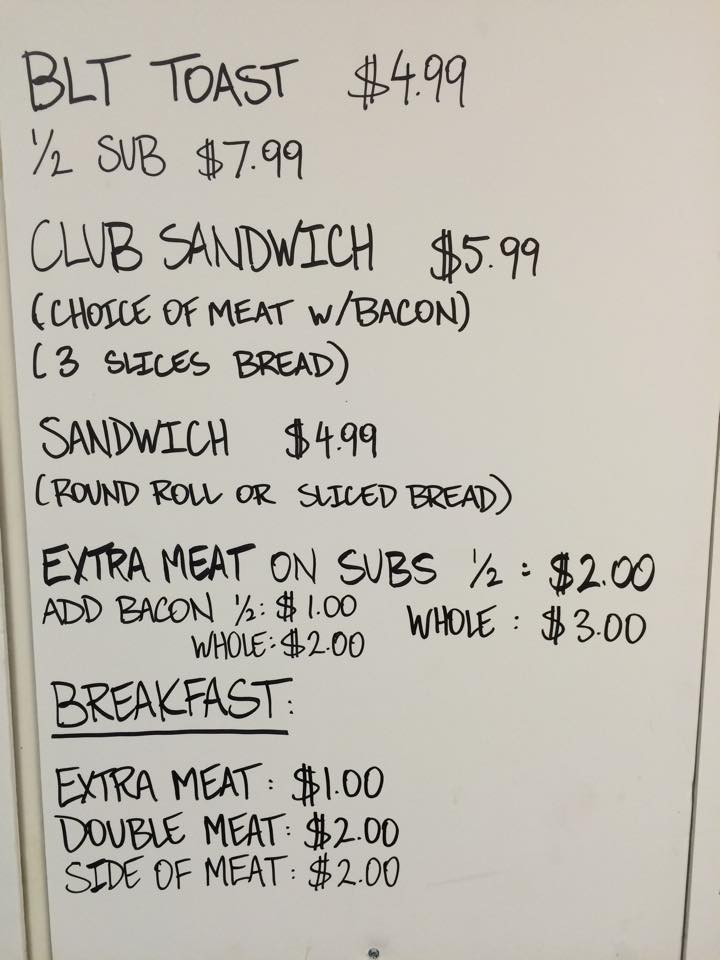 BLT TOAST $4.99
½ SUB $7.99
CLUB SANDWICH $5.99
(CHOICE OF MEAT W/BACON)
(3 SLICES BREAD)
SANDWICH $4.99
(ROUND ROLL OR SLICED BREAD)
EXTRA MEAT ON SUBS ½ : $2.00
WHOLE : $3.00
ADD BACON ½: $1.00
WHOLE: $2.00
BREAKFAST:
EXTRA MEAT: $1.00
DOUBLE MEAT: $2.00
SIDE OF MEAT: $2.00